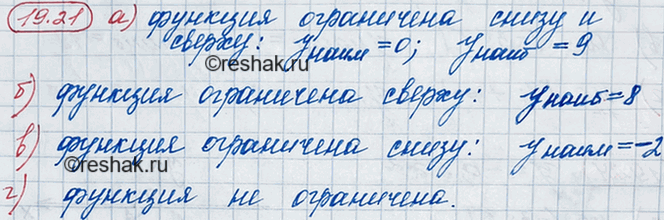 19.21 а) функция ограничена снизу и
сверху: yнаим = 0; yнаиб = 9
©reshak.ru
б) функция ограничена сверху: yнаиб = 8
в) функция ограничена снизу: yнаим = -2
©reshak.ru
г) функция не ограничена.